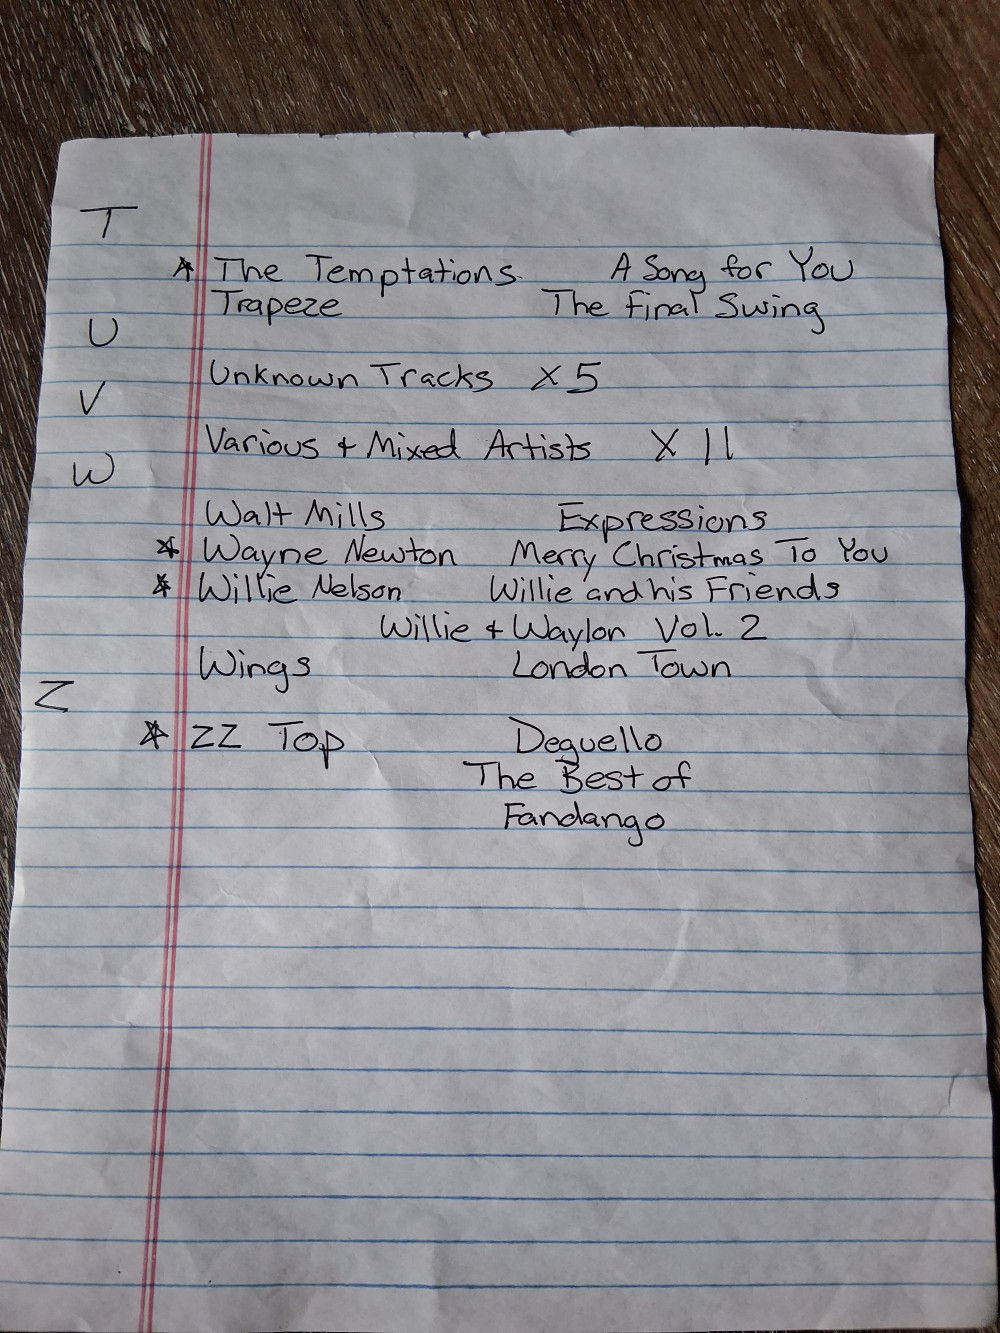 T
* The Temptations A Song for You
Trapeze The Final Swing
U
Unknown Tracks X 5
V
Various + Mixed Artists X 11
W
Walt Mills Expressions
* Wayne Newton Merry Christmas To You
* Willie Nelson Willie and his Friends
Willie + Waylon Vol. 2
Wings London Town
Z
* ZZ Top Deguello
The Best of
Fandango